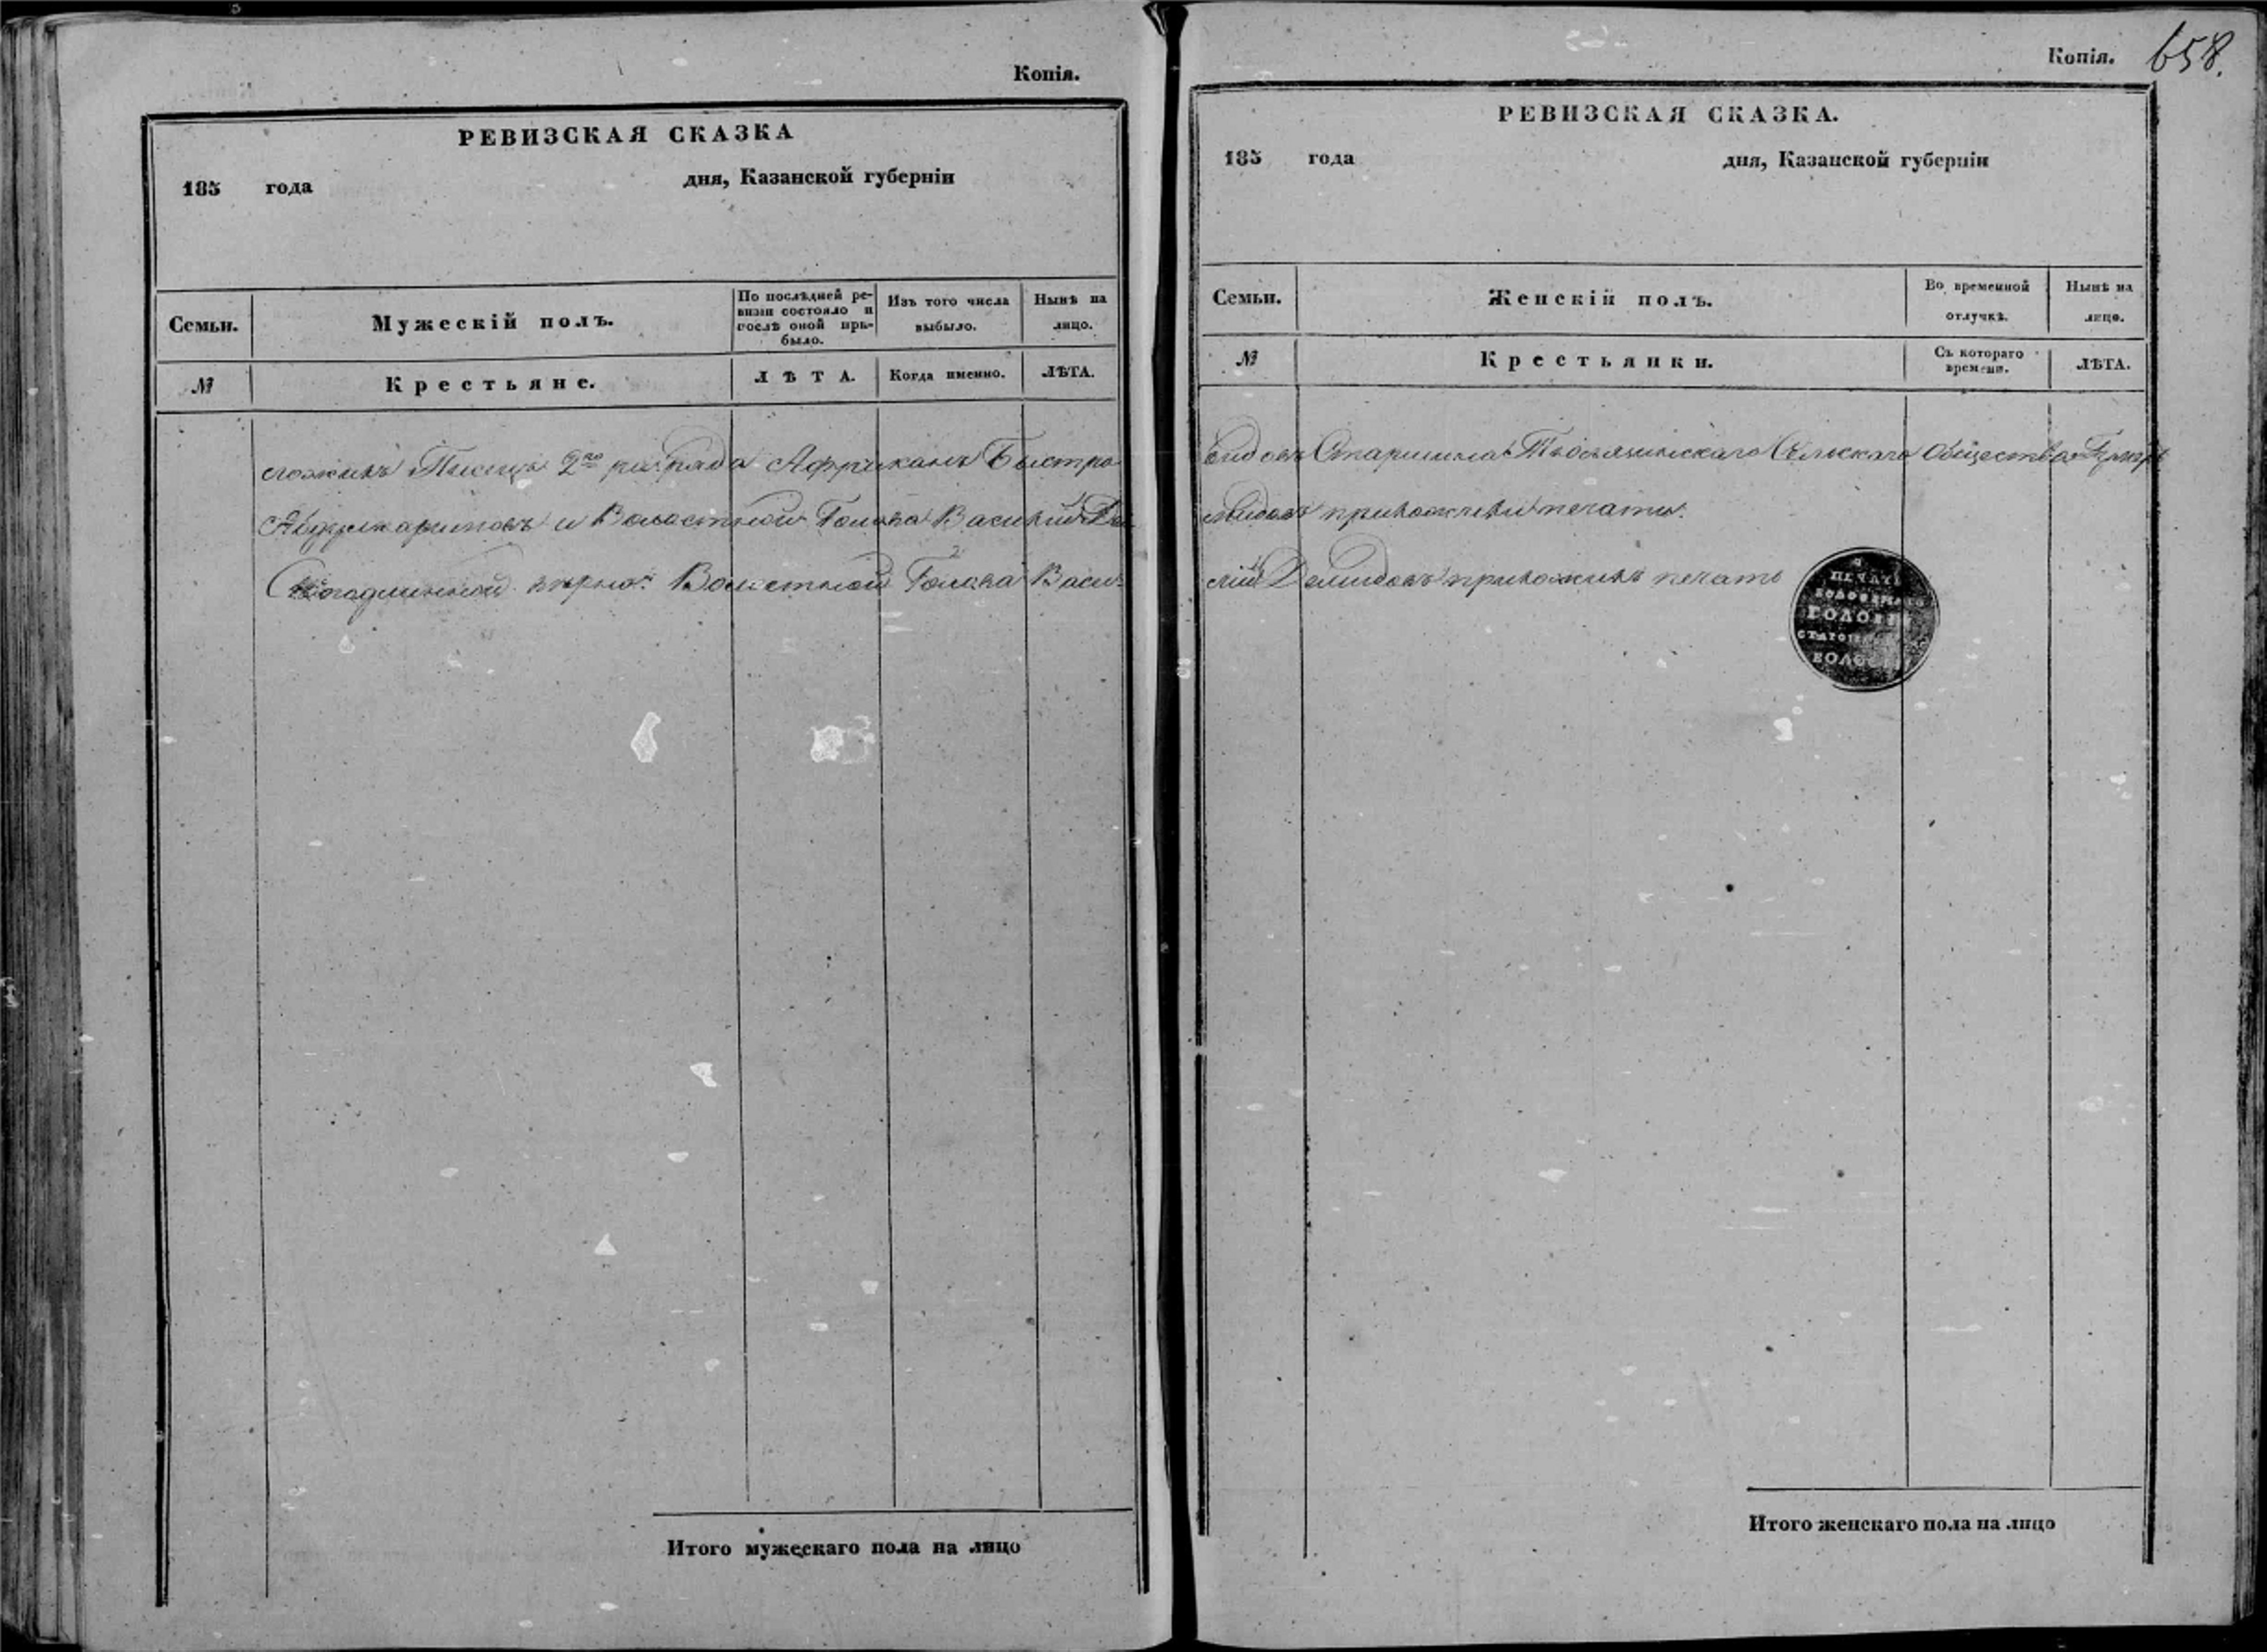 Копія.
РЕВИЗСКАЯ СКАЗКА
185 года дня, Казанской губерніи
Семьи. Мужескій полъ. По послѣдней ревизіи состояло и послѣ оной прибыло. Изъ того числа выбыло. Нынѣ на лицо.
№ Крестьяне. ЛѢТА. Когда именно. ЛѢТА.
ложилъ Писецъ 2го разряда Африканъ Быстро
и Волостной Голова Василій Де
Волостной Голова Васи
Итого мужескаго пола на лицо
Копія. 658.
РЕВИЗСКАЯ СКАЗКА.
185 года дня, Казанской губерніи
Семьи. Женскій полъ. Во временной отлучкѣ. Нынѣ на лицо.
№ Крестьянки. Съ котораго времени. ЛѢТА.
видовъ Старшина Сельскаго Общества
мидовъ приложили печати.
лій Демидовъ приложилъ печать
ПЕЧАТЬ
ГОЛОВЫ
ВОЛОС
Итого женскаго пола на лицо